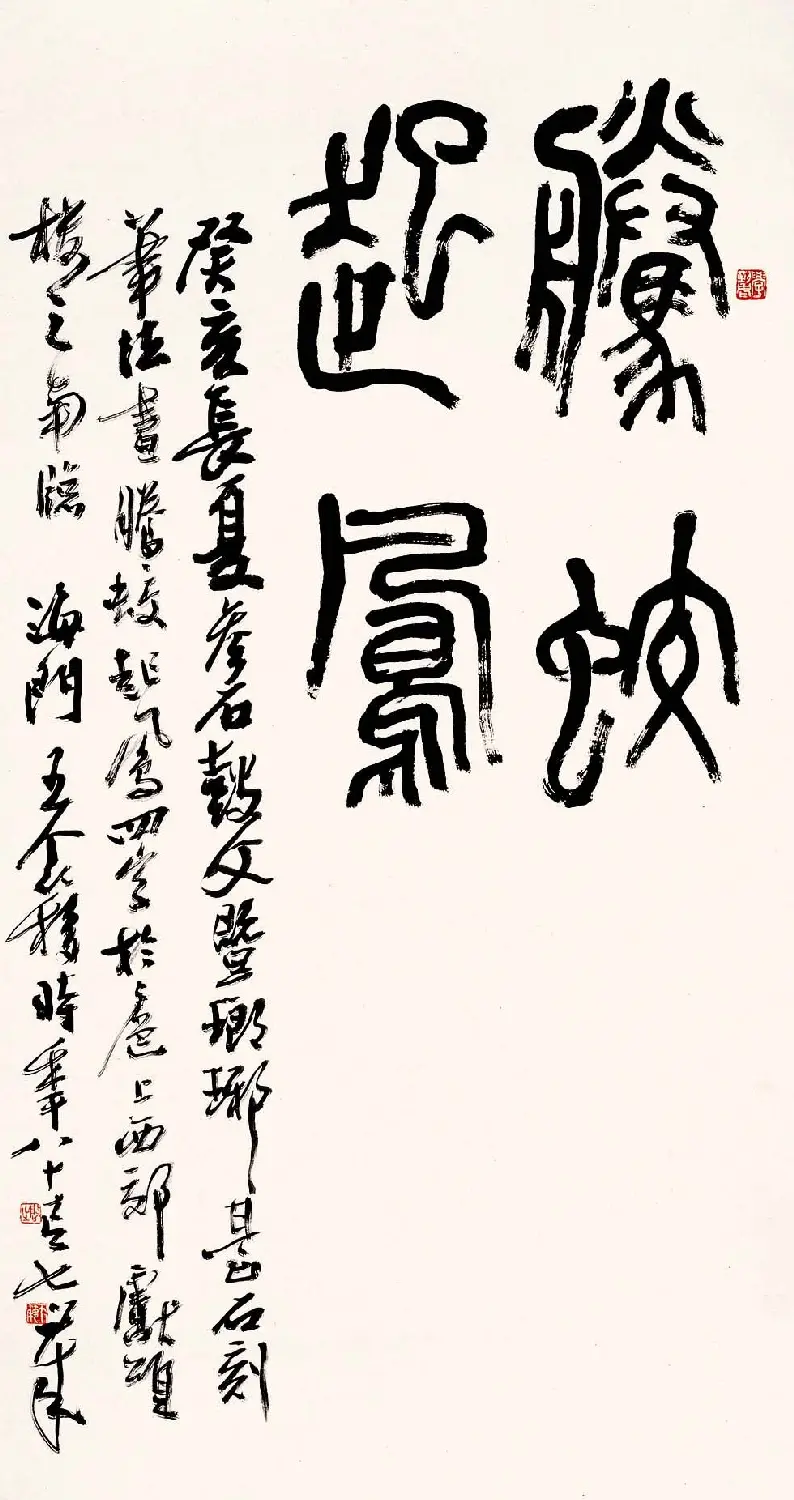 騰蛟
起鳳
癸亥長夏參石鼓文暨瑯琊臺石刻
筆法書騰蛟起鳳四字於滬上西郊
樓之南牕 海門王个簃時年八十有七